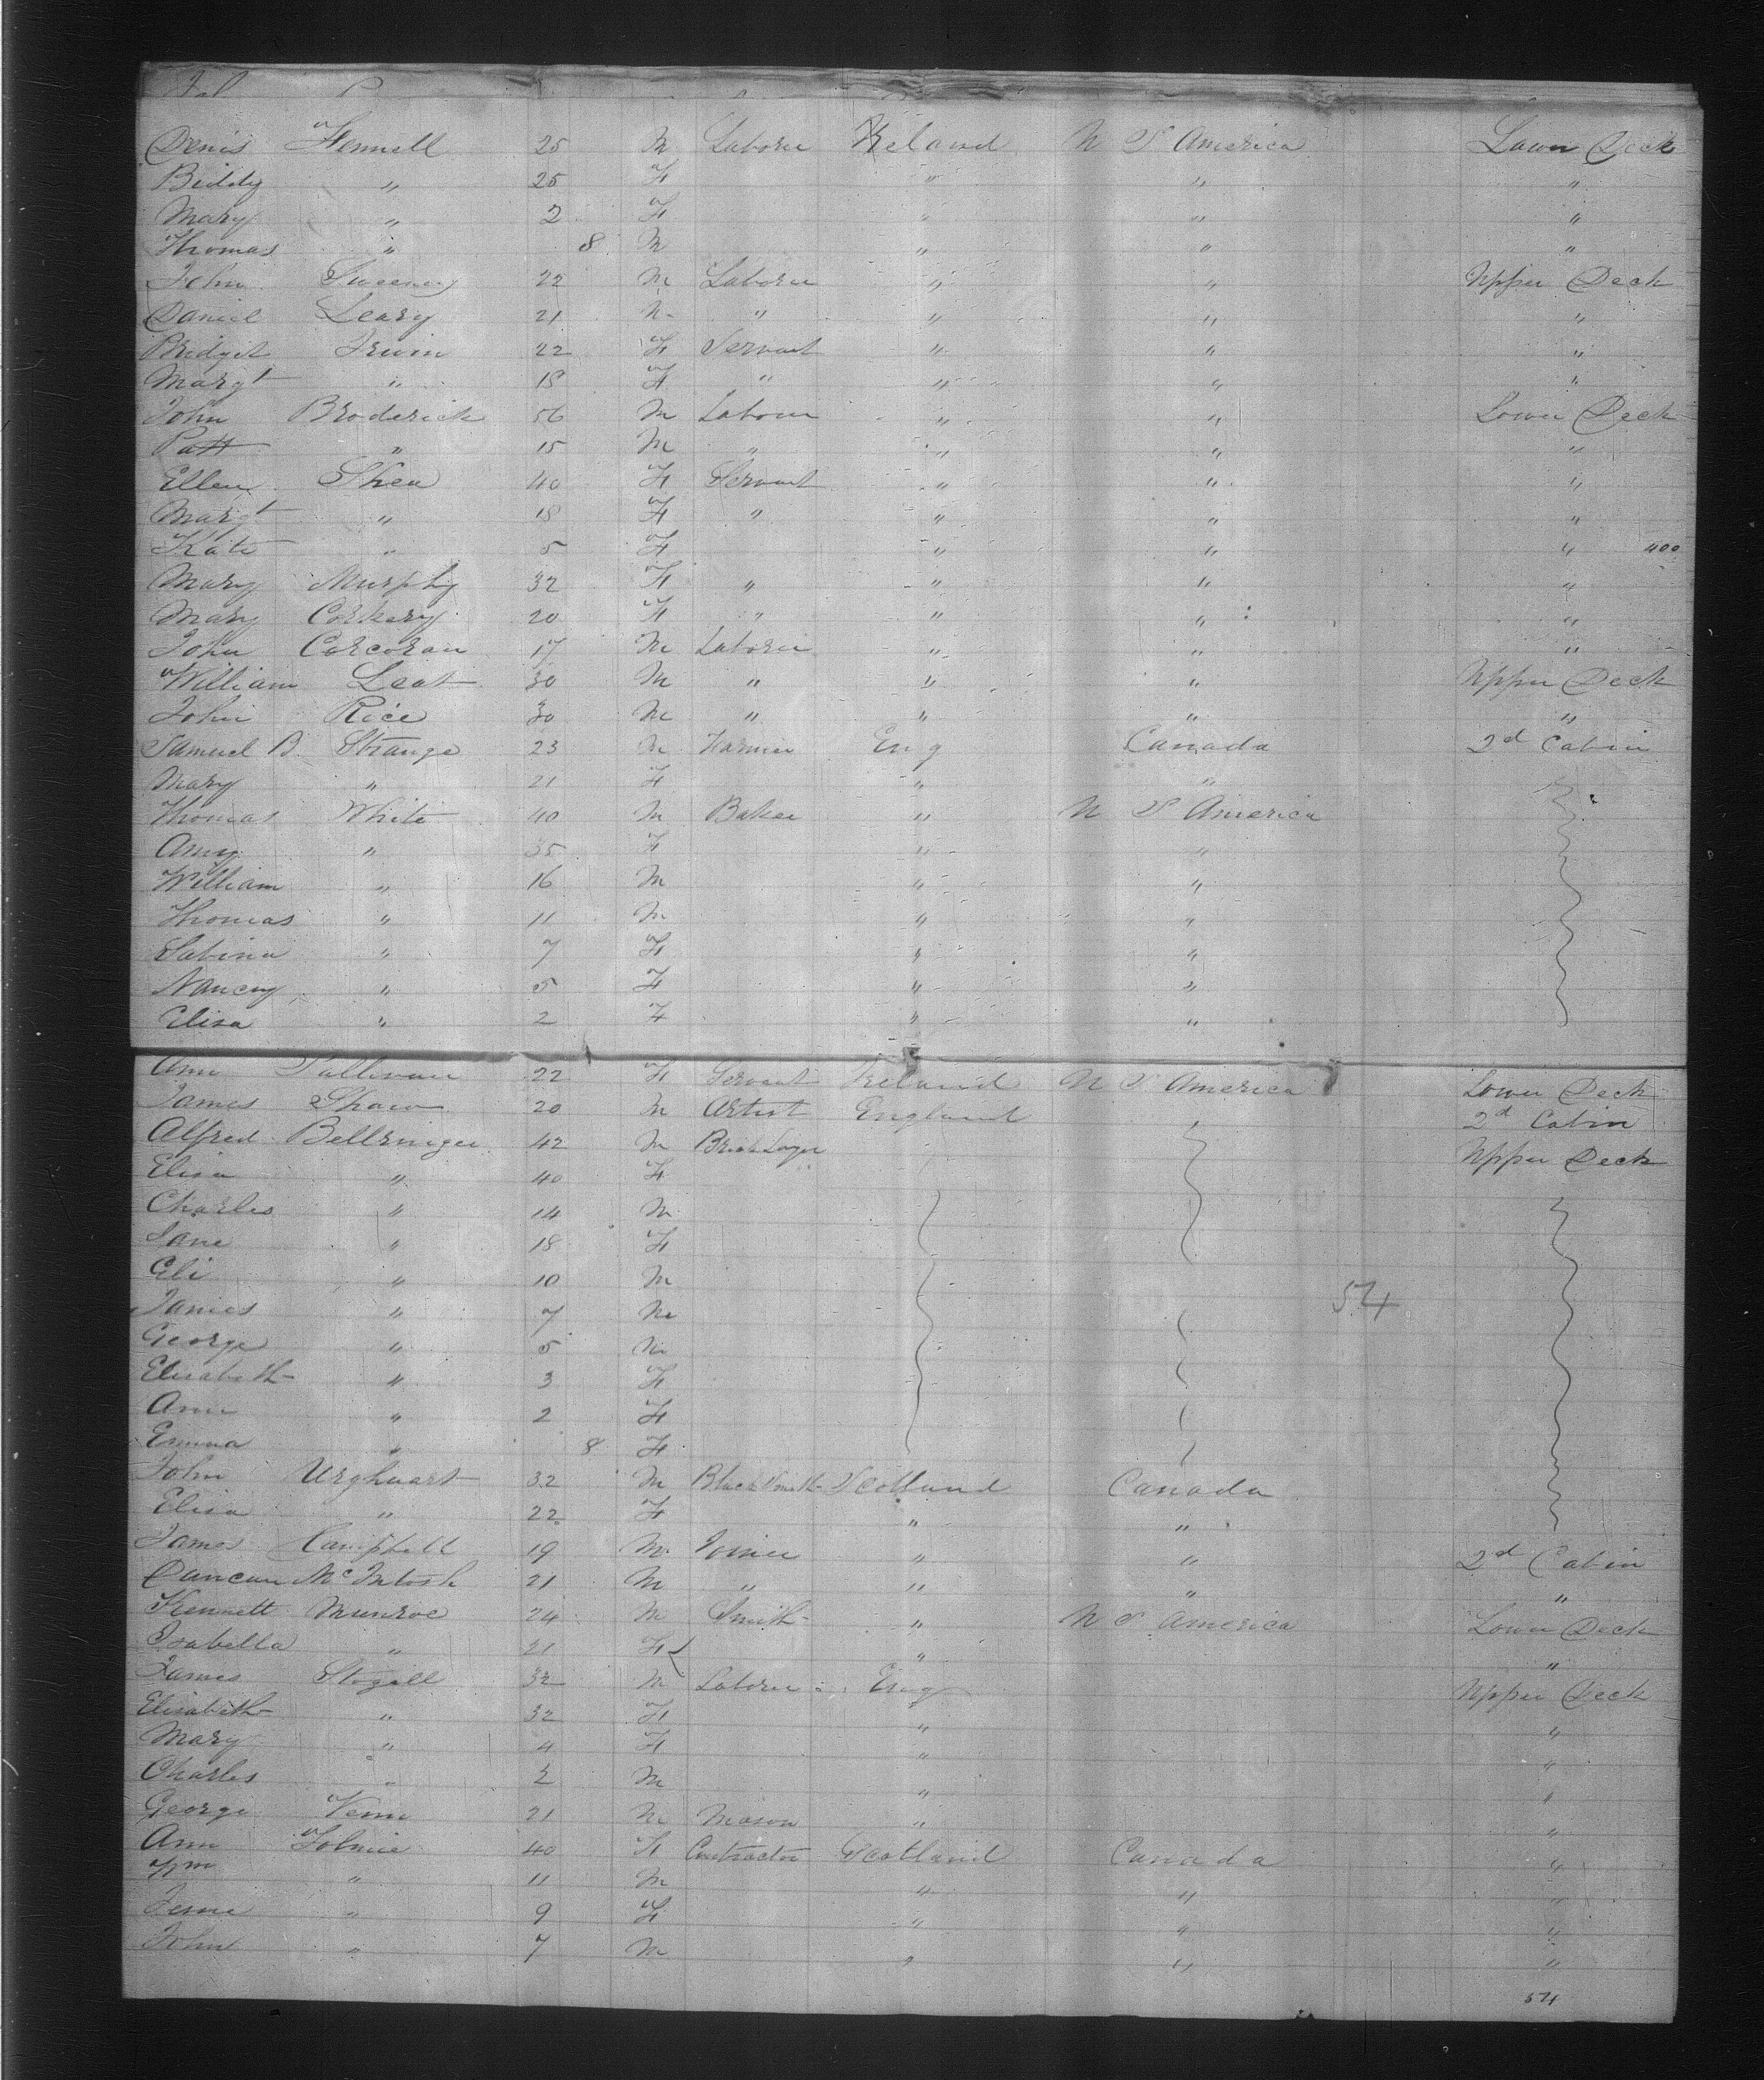 Denis Fennell 25 M Laborer Ireland N S America Lower Deck
Biddy " 25 F " " "
Mary " 2 F " " "
Thomas " 8 M " " "
John Sweeney 22 M Laborer " " Upper Deck
Daniel Leary 21 M " " " "
Bridget Irwin 22 F Servant " " "
Margt " 18 F " " " "
John Broderick 56 M Labour " " Lower Deck
Patt " 15 M " " " "
Ellen Shea 40 F Servant " " "
Margt " 18 F " " " "
Kate " 5 F " " " 400
Mary Murphy 32 F " " " "
Mary Corkery 20 F " " " "
John Corcoran 17 M Laborer " " "
William Leat 30 M " " " Upper Deck
John Rice 30 M " " " "
Samuel B. Strange 23 M Farmer Eng Canada 2d Cabin
Mary " 21 F " "
Thomas White 40 M Baker " N S America
Amy " 35 F " "
William " 16 M " "
Thomas " 11 M " "
Sabina " 7 F " "
Nancy " 5 F " "
Elisa " 2 F " "
Ann Sullivan 22 F Servant Ireland N S America Lower Deck
James Shaw 20 M Artist England 2d Cabin
Alfred Bellringer 42 M Brick Layer Upper Deck
Elisa " 40 F
Charles " 14 M
Jane " 18 F
Eli " 10 M
James " 7 M 54
George " 5 M
Elisabeth " 3 F
Ann " 2 F
Emma " 8 F
John Urghuart 32 M BlackSmith Scotland Canada
Elisa " 22 F " "
James Campbell 19 M Joiner " " 2d Cabin
Duncan McIntosh 21 M " " " "
Kennett Munroe 24 M Smith " N S America Lower Deck
Isabella " 21 F " "
James Stogell 32 M Laborer Eng Upper Deck
Elisabeth " 32 F " "
Mary " 4 F " "
Charles " 2 M " "
George Venn 21 M Mason " "
Ann Tolmie 40 F Contractor Scotland Canada "
Wm " 11 M " " "
" 9 F " " "
John " 7 M " " "
54